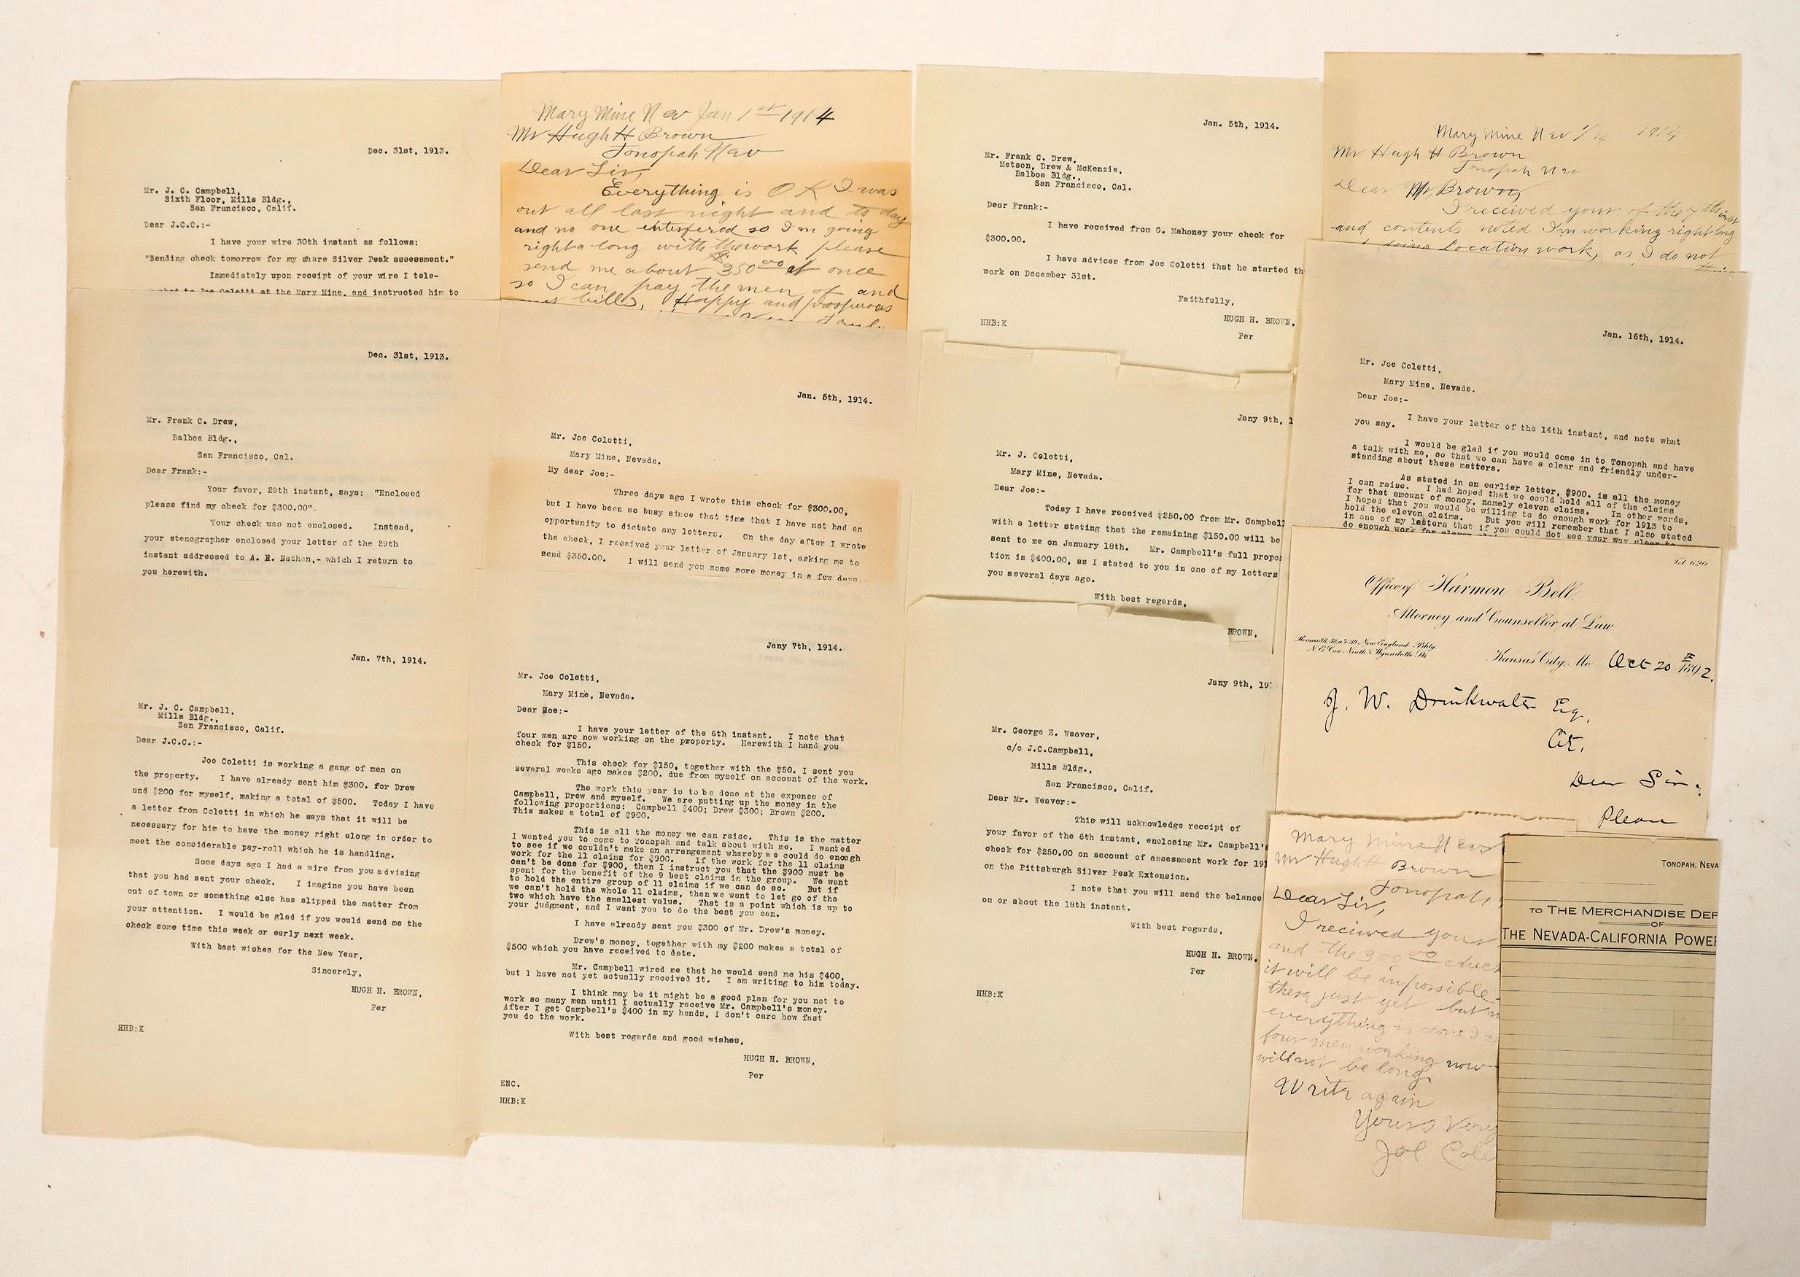 Dec. 31st, 1913.
Mr. J. C. Campbell,
Sixth Floor, Mills Bldg.,
San Francisco, Calif.
Dear J.C.C.:-
I have your wire 30th instant as follows:
"Sending check tomorrow for my share Silver Peak assessment."
Immediately upon receipt of your wire I tele-
to Joe Coletti at the Mary Mine, and instructed him to
Dec. 31st, 1913.
Mr. Frank C. Drew,
Balboa Bldg.,
San Francisco, Cal.
Dear Frank:-
Your favor, 29th instant, says: "Enclosed
please find my check for $300.00".
Your check was not enclosed. Instead,
your stenographer enclosed your letter of the 29th
instant addressed to A. R. Nathan,- which I return to
you herewith.
Jan. 7th, 1914.
Mr. J. C. Campbell,
Mills Bldg.,
San Francisco, Calif.
Dear J.C.C.:-
Joe Coletti is working a gang of men on
the property. I have already sent him $300. for Drew
and $200 for myself, making a total of $500. Today I have
a letter from Coletti in which he says that it will be
necessary for him to have the money right along in order to
meet the considerable pay-roll which he is handling.
Some days ago I had a wire from you advising
that you had sent your check. I imagine you have been
out of town or something else has slipped the matter from
your attention. I would be glad if you would send me the
check some time this week or early next week.
With best wishes for the New Year,
Sincerely,
HUGH H. BROWN,
Per
HHB:K
Mary Mine Nev Jan 1st 1914
Mr Hugh H Brown
Tonopah Nev
Dear Sir,
Everything is O K I was
out all last night and to day
and no one interfered so I'm going
right a long with the work please
send me about $350.00 at once
so I can pay the men of and
bills, Happy and prosperous
Jan. 5th, 1914.
Mr. Joe Coletti,
Mary Mine, Nevada.
My dear Joe:-
Three days ago I wrote this check for $300.00,
but I have been so busy since that time that I have not had an
opportunity to dictate any letters. On the day after I wrote
the check, I received your letter of January 1st, asking me to
send $350.00. I will send you some more money in a few days
Jany 7th, 1914.
Mr. Joe Coletti,
Mary Mine, Nevada.
Dear Moe:-
I have your letter of the 6th instant. I note that
four men are now working on the property. Herewith I hand you
check for $150.
This check for $150, together with the $50. I sent you
several weeks ago makes $200. due from myself on account of the work.
The work this year is to be done at the expense of
Campbell, Drew and myself. We are putting up the money in the
following proportions: Campbell $400; Drew $300; Brown $200.
This makes a total of $900.
This is all the money we can raise. This is the matter
I wanted you to come to Tonopah and talk about with me. I wanted
to see if we couldn't make an arrangement whereby we could do enough
work for the 11 claims for $900. If the work for the 11 claims
can't be done for $900, then I instruct you that the $900 must be
spent for the benefit of the 9 best claims in the group. We want
to hold the entire group of 11 claims if we can do so. But if
we can't hold the whole 11 claims, then we want to let go of the
two which have the smallest value. That is a point which is up to
your judgment, and I want you to do the best you can.
I have already sent you $300 of Mr. Drew's money.
Drew's money, together with my $200 makes a total of
$500 which you have received to date.
Mr. Campbell wired me that he would send me his $400,
but I have not yet actually received it. I am writing to him today.
I think may be it might be a good plan for you not to
work so many men until I actually receive Mr. Campbell's money.
After I get Campbell's $400 in my hands, I don't care how fast
you do the work.
With best regards and good wishes,
HUGH H. BROWN,
Per
ENC.
HHB:K
Jan. 5th, 1914.
Mr. Frank C. Drew,
Metson, Drew & McKenzie,
Balboa Bldg.,
San Francisco, Cal.
Dear Frank:-
I have received from G. Mahoney your check for
$300.00.
I have advices from Joe Coletti that he started th
work on December 31st.
Faithfully,
HUGH H. BROWN,
HHB:K
Per
Jany 9th, 1
Mr. J. Coletti,
Mary Mine, Nevada.
Dear Joe:-
Today I have received $250.00 from Mr. Campbell
with a letter stating that the remaining $150.00 will be
sent to me on January 18th. Mr. Campbell's full propo
tion is $400.00, as I stated to you in one of my letters
you several days ago.
With best regards,
BROWN,
Jany 9th, 19
Mr. George E. Weaver,
c/o J.C.Campbell,
Mills Bldg.,
San Francisco, Calif.
Dear Mr. Weaver:-
This will acknowledge receipt of
your favor of the 6th instant, enclosing Mr. Campbell's
check for $250.00 on account of assessment work for 191
on the Pittsburgh Silver Peak Extension.
I note that you will send the balance
on or about the 18th instant.
With best regards,
HUGH H. BROWN,
Per
HHB:K
Mary Mine Nev 1/14 1914
Mr Hugh H Brown
Tonopah Nev
Dear Mr Brown,
I received yours of the 7th inst
and contents noted I'm working right long
doing location work, as I do not
Jan. 16th, 1914.
Mr. Joe Coletti,
Mary Mine, Nevada.
Dear Joe:-
I have your letter of the 14th instant, and note what
you say.
I would be glad if you would come in to Tonopah and have
a talk with me, so that we can have a clear and friendly under-
standing about these matters.
As stated in an earlier letter, $900. is all the money
I can raise. I had hoped that we could hold all of the claims
for that amount of money, namely eleven claims. In other words,
I hoped that you would be willing to do enough work for 1913 to
hold the eleven claims. But you will remember that I also stated
in one of my letters that if you could not see your way clear to
do enough work for eleven
Tel. 620
Office of Harmon Bell
Attorney and Counsellor at Law
New England Bldg.
N.E. Cor. Ninth & Wyandotte Sts.
Kansas City, Mo Oct 20 1892.
J. W. Drinkwater Esq,
Dear Sir:
Please
Mary Mine Nev
Mr Hugh H Brown
Tonopah,
Dear Sir,
I recieved yours
and the 300.00 check
it will be impossible
these just yet but
everything is done I
four men working now
will not be long.
Write again
Yours Very
Joe Cole
TONOPAH, NEVA
TO THE MERCHANDISE DEP
OF
THE NEVADA-CALIFORNIA POWER